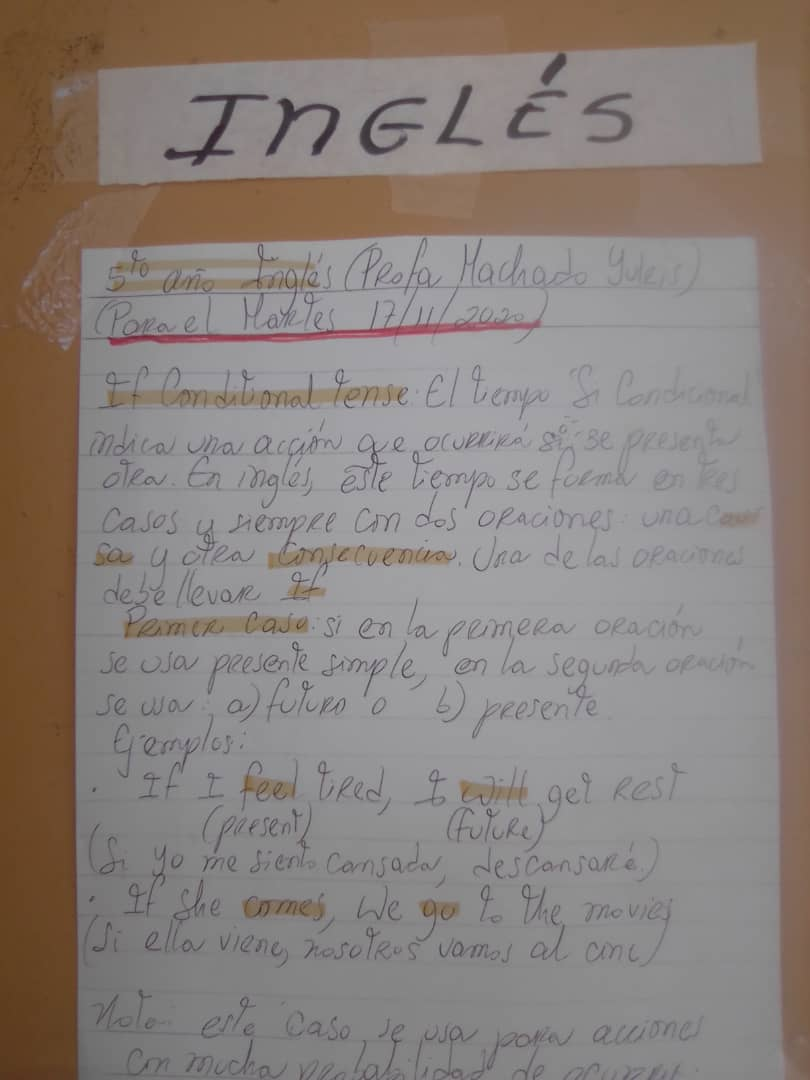 INGLÉS
5to año Inglés (Profa Machado Yuleis)
(Para el Martes 17/11/2020)
If Conditional tense: El tiempo "Si Condicional"
indica una acción que ocurrirá si se presenta
otra. En inglés, este tiempo se forma en tres
casos y siempre con dos oraciones: una cau
sa y otra consecuencia. Una de las oraciones
debe llevar If
Primer Caso: si en la primera oración
se usa presente simple, en la segunda oración
se usa: a) futuro o b) presente
Ejemplos:
. If I feel tired, I will get rest
(present) (future)
(Si yo me siento cansada, descansaré.)
. If she comes, we go to the movies
(Si ella viene, nosotros vamos al cine)
Nota: este caso se usa para acciones
con mucha probabilidad de ocurrir.